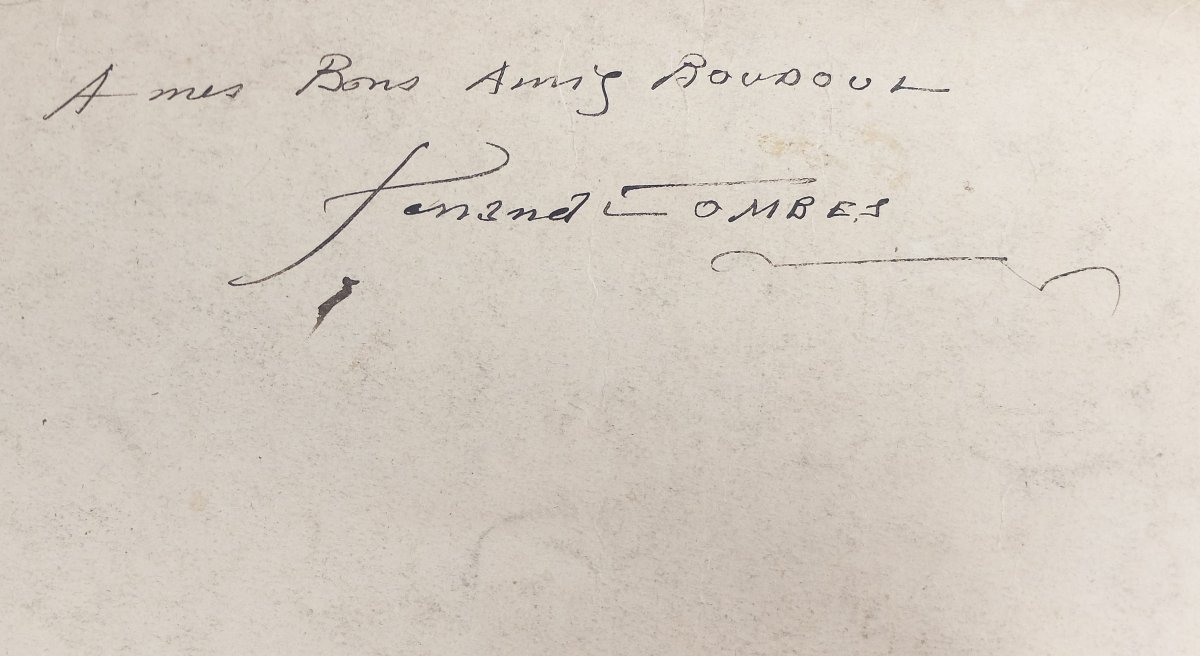 A mes Bons Amis BOUDOUL
Fernand COMBES